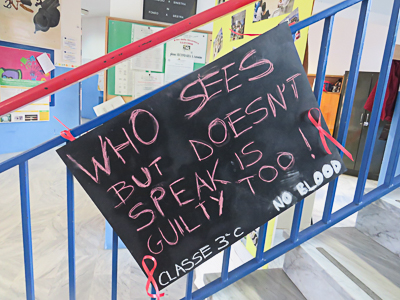 WHO SEES
BUT DOESN'T
SPEAK IS
GUILTY TOO!
CLASSE 3^C
NO BLOOD